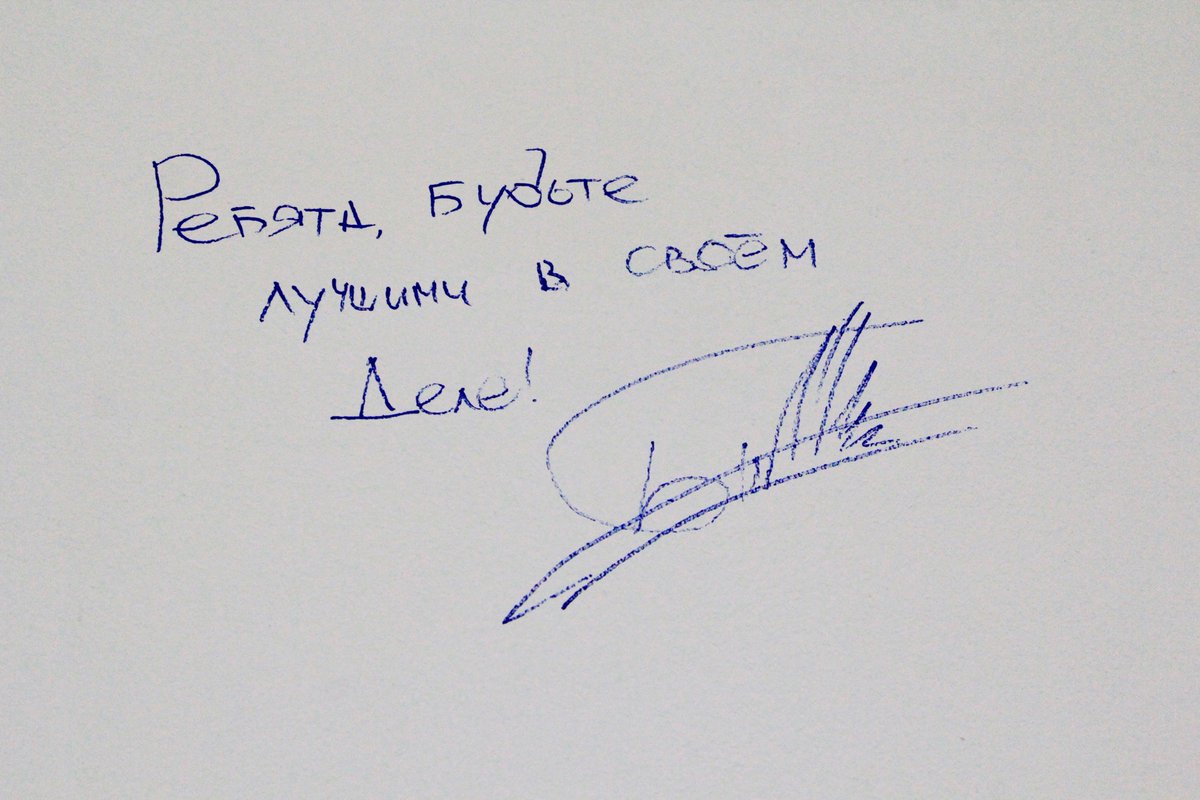 Ребята, будьте
лучшими в своём
Деле!